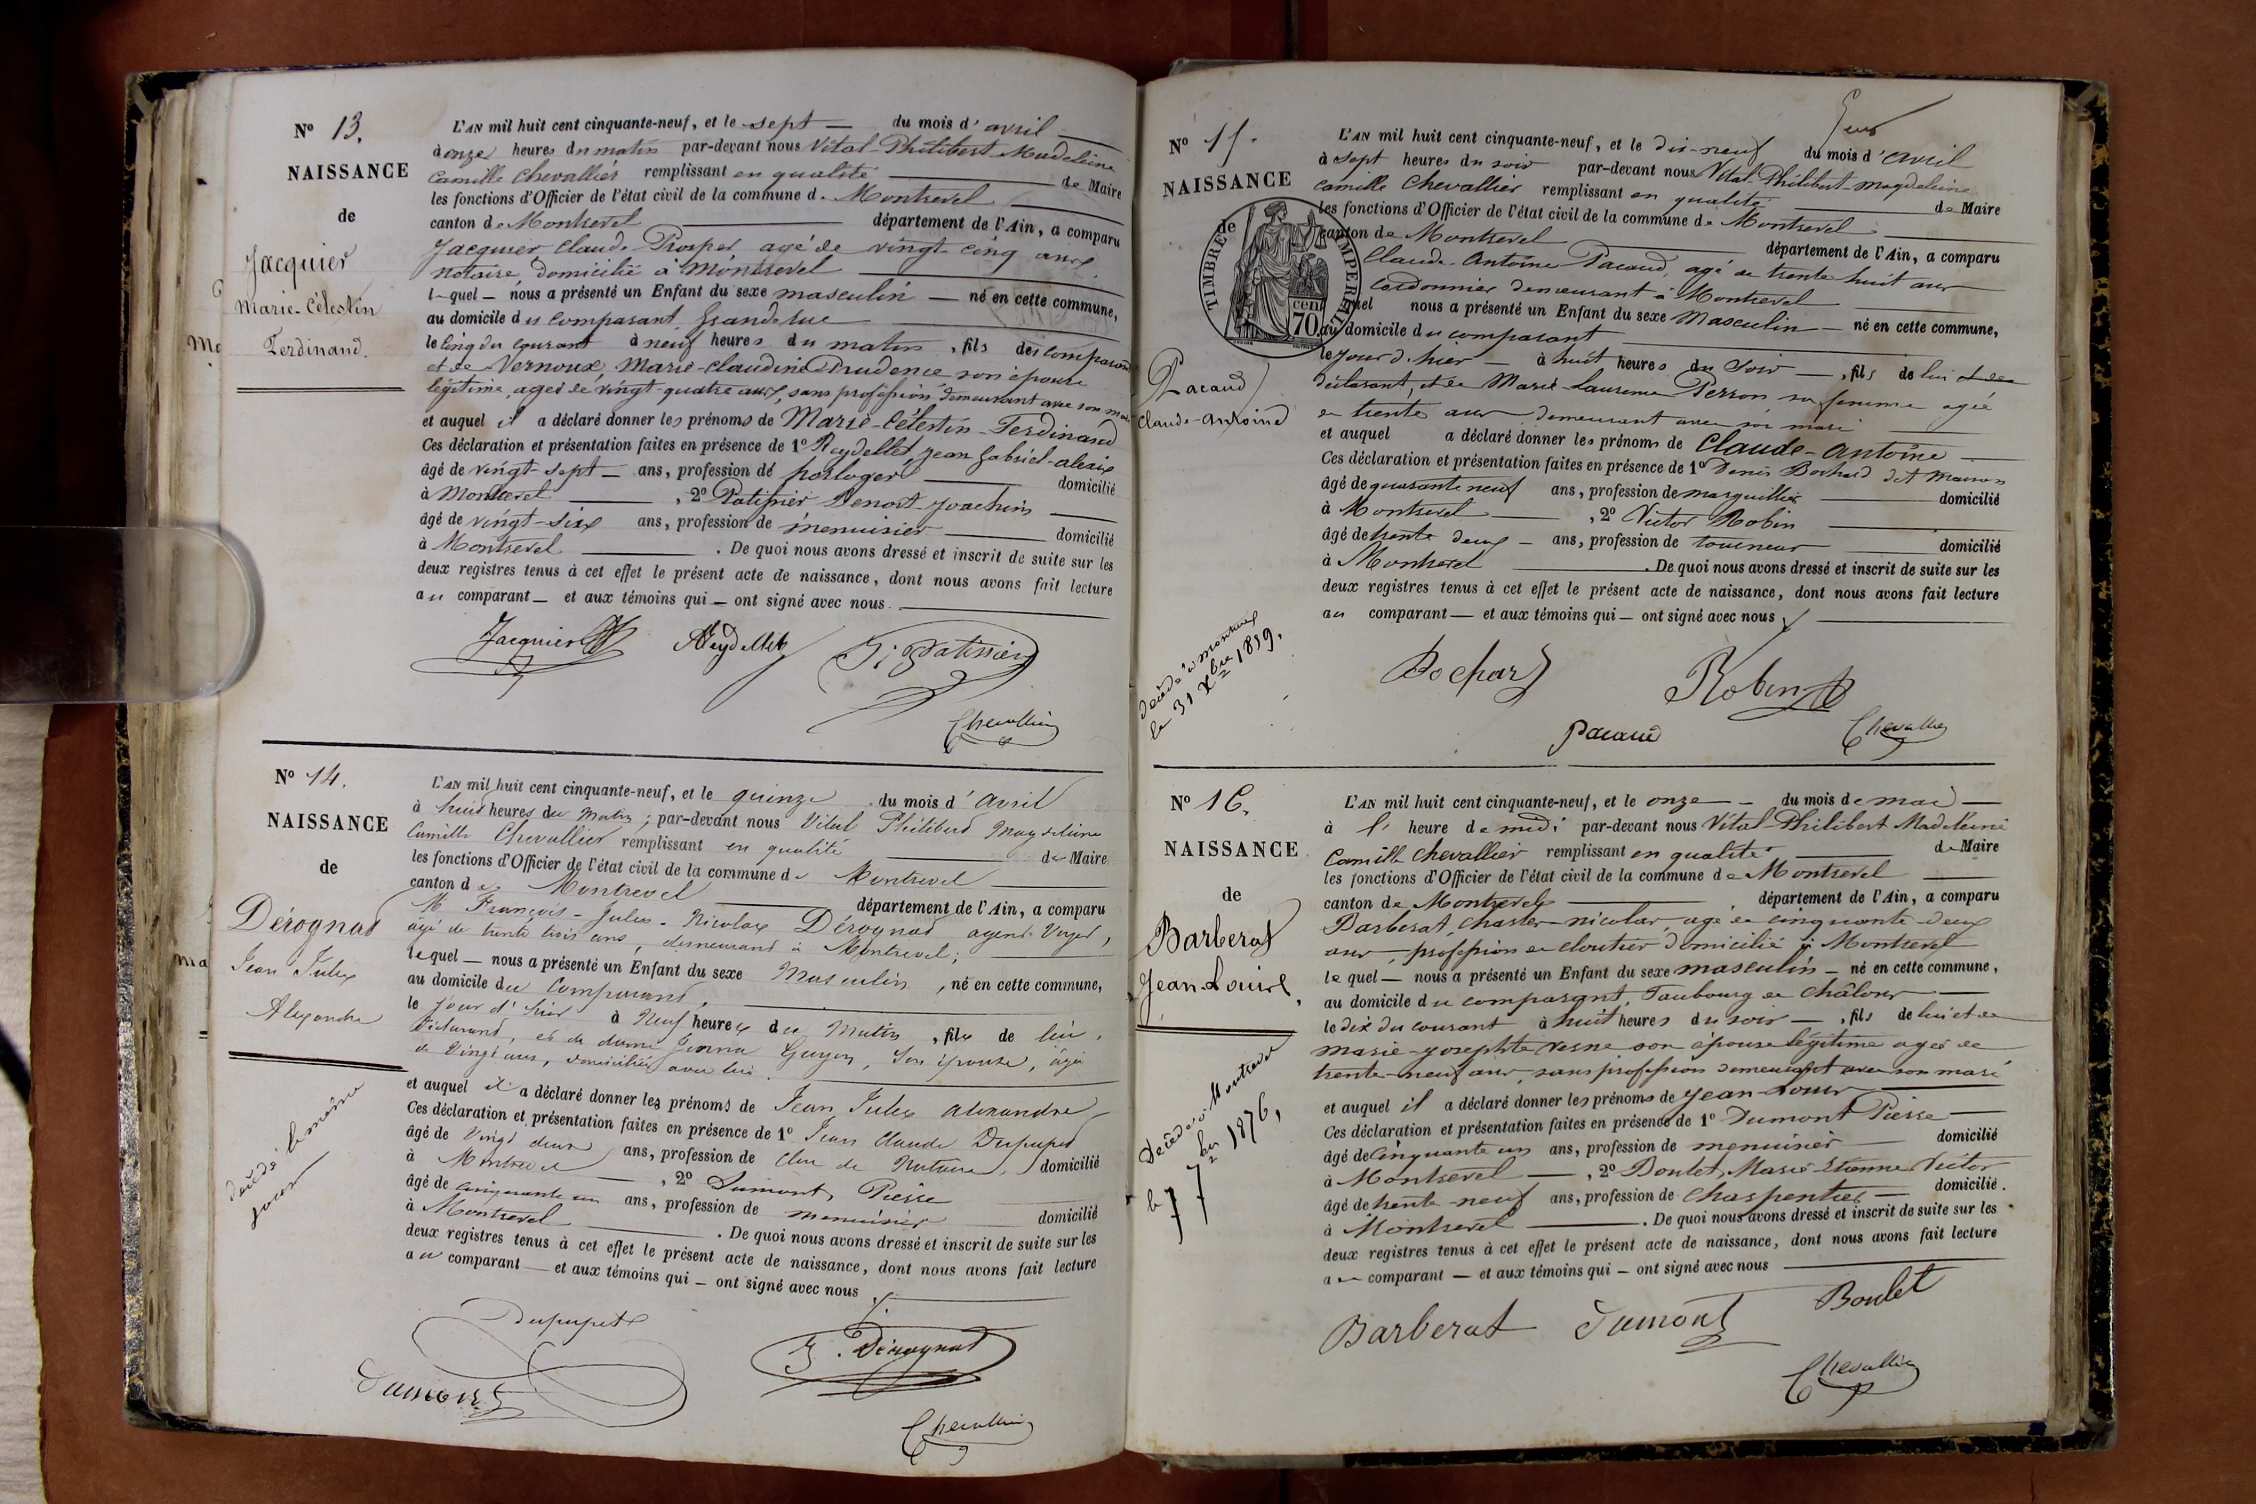 Nº 13.
NAISSANCE
de
Jacquier
Marie-Célestin
Ferdinand.
L'AN mil huit cent cinquante-neuf, et le sept — du mois d'avril
à onze heures du matin par-devant nous Vital-Philibert Madeleine
Camille Chevallier remplissant en qualité de Maire
les fonctions d'Officier de l'état civil de la commune de Montrevel
canton de Montrevel département de l'Ain, a comparu
Jacquier, Claude-Prosper agé de vingt-cinq ans,
notaire, domicilié à Montrevel
lequel — nous a présenté un Enfant du sexe masculin — né en cette commune,
au domicile du comparant, Grande rue
le cinq du courant à neuf heures du matin, fils des comparant
et de Vernoux, Marie-Claudine Prudence son épouse
légitime, agée de vingt-quatre ans, sans profession demeurant avec son mari
et auquel il a déclaré donner les prénoms de Marie-Célestin-Ferdinand
Ces déclaration et présentation faites en présence de 1º Reydellet, Jean Gabriel-alexis
âgé de vingt-sept — ans, profession de horloger domicilié
à Montrevel, 2º Patissier Benoit-Joachim
âgé de vingt-six ans, profession de menuisier domicilié
à Montrevel. De quoi nous avons dressé et inscrit de suite sur les
deux registres tenus à cet effet le présent acte de naissance, dont nous avons fait lecture
au comparant — et aux témoins qui — ont signé avec nous.
Jacquier Reydellet Patissier
Chevallier
Nº 14.
NAISSANCE
de
Dérognat
Jean Jules
Alexandre
décédé le même
jour
L'AN mil huit cent cinquante-neuf, et le quinze du mois d'avril
à huit heures du matin; par-devant nous Vital Philibert Magdeleine
Camille Chevallier remplissant en qualité de Maire
les fonctions d'Officier de l'état civil de la commune de Montrevel
canton de Montrevel département de l'Ain, a comparu
M. François-Jules-Nicolas Dérognat agent-Voyer,
âgé de trente trois ans, demeurant à Montrevel;
lequel — nous a présenté un Enfant du sexe Masculin, né en cette commune,
au domicile du comparant,
le jour d'hier à Neuf heures du Matin, fils de lui
déclarant, et de dame Jenna Guyon, son épouse, âgée
de vingt ans, domiciliée avec lui.
et auquel il a déclaré donner les prénoms de Jean Jules alexandre
Ces déclaration et présentation faites en présence de 1º Jean Claude Dupupet
âgé de vingt deux ans, profession de clerc de Notaire, domicilié
à Montrevel, 2º Dumont, Pierre
âgé de cinquante un ans, profession de menuisier domicilié
à Montrevel. De quoi nous avons dressé et inscrit de suite sur les
deux registres tenus à cet effet le présent acte de naissance, dont nous avons fait lecture
au comparant — et aux témoins qui — ont signé avec nous
Dupupet J. Dérognat
Dumont
Chevallier
Nº 15.
NAISSANCE
de
TIMBRE IMPERIAL
70 cent
Pacaud
Claude-Antoine
décédé à Montrevel
le 31 Xbre 1859.
L'AN mil huit cent cinquante-neuf, et le dix-neuf du mois d'avril
à sept heures du soir par-devant nous Vital-Philibert-magdeleine
Camille Chevallier remplissant en qualité de Maire
les fonctions d'Officier de l'état civil de la commune de Montrevel
canton de Montrevel département de l'Ain, a comparu
Claude-Antoine Pacaud, agé de trente huit ans
Cordonnier demeurant à Montrevel
quel nous a présenté un Enfant du sexe Masculin — né en cette commune,
au domicile du comparant
le jour d'hier — à huit heures du soir —, fils de lui
déclarant, et de Marie-Laurence Perron sa femme agée
de trente ans demeurant avec son mari
et auquel a déclaré donner les prénoms de Claude-Antoine
Ces déclaration et présentation faites en présence de 1º Denis Bochard dit
âgé de quarante neuf ans, profession de marguillier domicilié
à Montrevel, 2º Victor Robin
âgé de trente deux — ans, profession de tourneur domicilié
à Montrevel. De quoi nous avons dressé et inscrit de suite sur les
deux registres tenus à cet effet le présent acte de naissance, dont nous avons fait lecture
au comparant — et aux témoins qui — ont signé avec nous
Bochard Robin
Pacaud Chevallier
Nº 16.
NAISSANCE
de
Barberat
Jean-Louis,
Décédé à Montrevel
le 7 7bre 1876,
L'AN mil huit cent cinquante-neuf, et le onze — du mois de mai —
à l' heure de midi par-devant nous Vital-Philibert Madeleine
Camille Chevallier remplissant en qualité de Maire
les fonctions d'Officier de l'état civil de la commune de Montrevel
canton de Montrevel département de l'Ain, a comparu
Barberat, Charles-nicolas, agé de cinquante-deux
ans, profession de cloutier domicilié à Montrevel
lequel — nous a présenté un Enfant du sexe masculin — né en cette commune,
au domicile du comparant, Faubourg de Châlons
le dix du courant à huit heures du soir —, fils de lui et de
Marie-Josephte Vesne son épouse légitime agée de
trente-neuf ans, sans profession demeurant avec son mari
et auquel il a déclaré donner les prénoms de Jean-Louis
Ces déclaration et présentation faites en présence de 1º Dumont Pierre
âgé de cinquante un ans, profession de menuisier domicilié
à Montrevel —, 2º Boulet, Marie-Etienne Victor
âgé de trente-neuf ans, profession de Charpentier — domicilié.
à Montrevel. De quoi nous avons dressé et inscrit de suite sur les
deux registres tenus à cet effet le présent acte de naissance, dont nous avons fait lecture
au comparant — et aux témoins qui — ont signé avec nous
Barberat Dumont Boulet
Chevallier